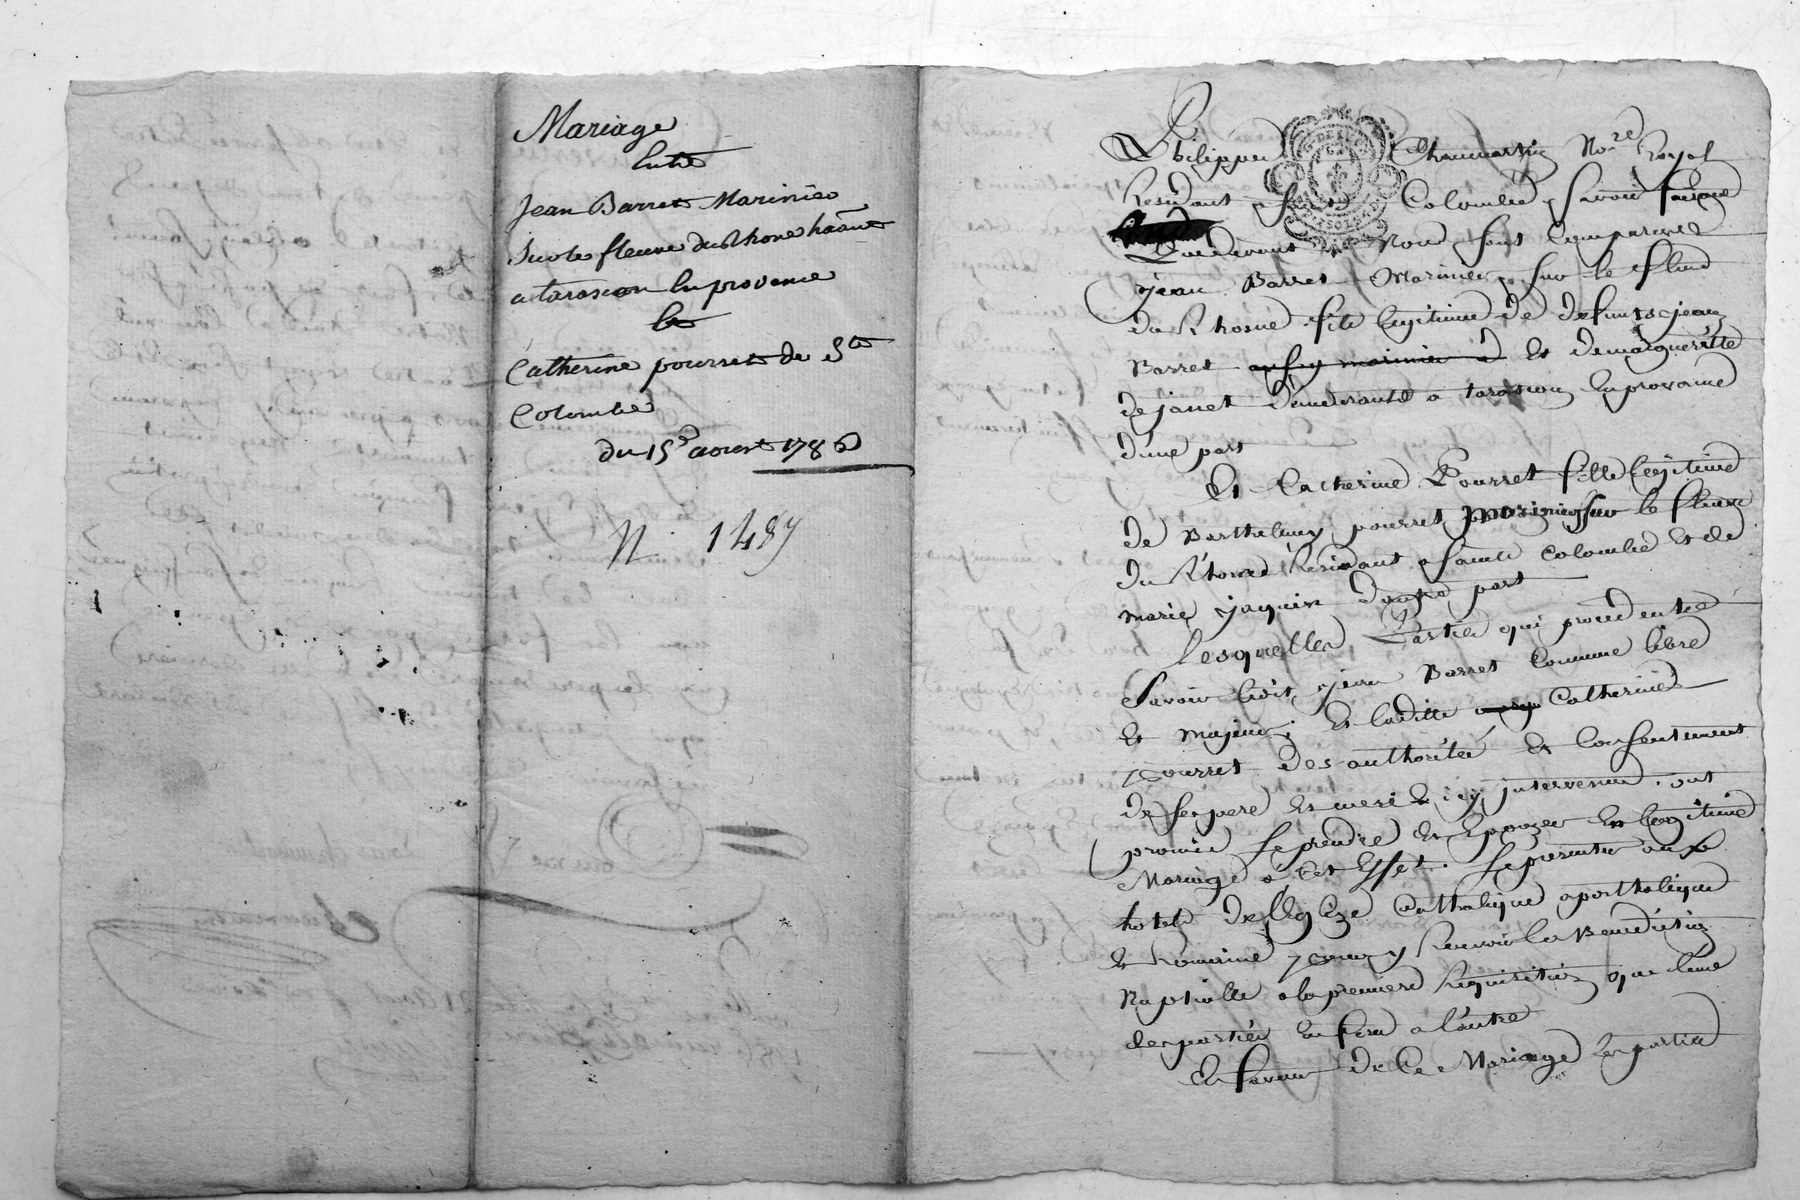 Mariage
Entre
Jean Barret Marinier
sur le fleuve du Rhone habitant
a tarascon En provence
Et
Catherine pourret de Ste
Colombe
du 15e aoust 1786
N. 1487
Philippe Chaumartin No.re Royal
Residant a Sainte Colombe, Savoir faisons
Que devant Nous sont Comparus
jean Barret Marinier sur le fleuve
du Rhosne fils legitime de defunts jean
Barret aussy marinier Et de margueritte
de janet demeurants a tarascon En provance
d'une part
Et Catherine Pourret fille legitime
de Barthelemy pourret marinier sur le fleuve
du Rhone Residant a sainte Colombe Et de
marie jaquin d'autre part
Lesquelles Parties qui procedent
Savoir ledit jean Barret Comme libre
Et majeur; Et laditte Catherine
Pourret des authorités Et Consentement
de ses pere Et mere Icy intervenus, ont
promis se prendre Et Epouzer En legitime
Mariage a Cet Effet se presenter aux
hotels de l'Eglize Catholique apostholique
Et Romaine pour y Recevoir la Benediction
Nuptialle a la premiere Requisition que l'une
des parties En fera a l'autre
En faveur de Ce Mariage les parties